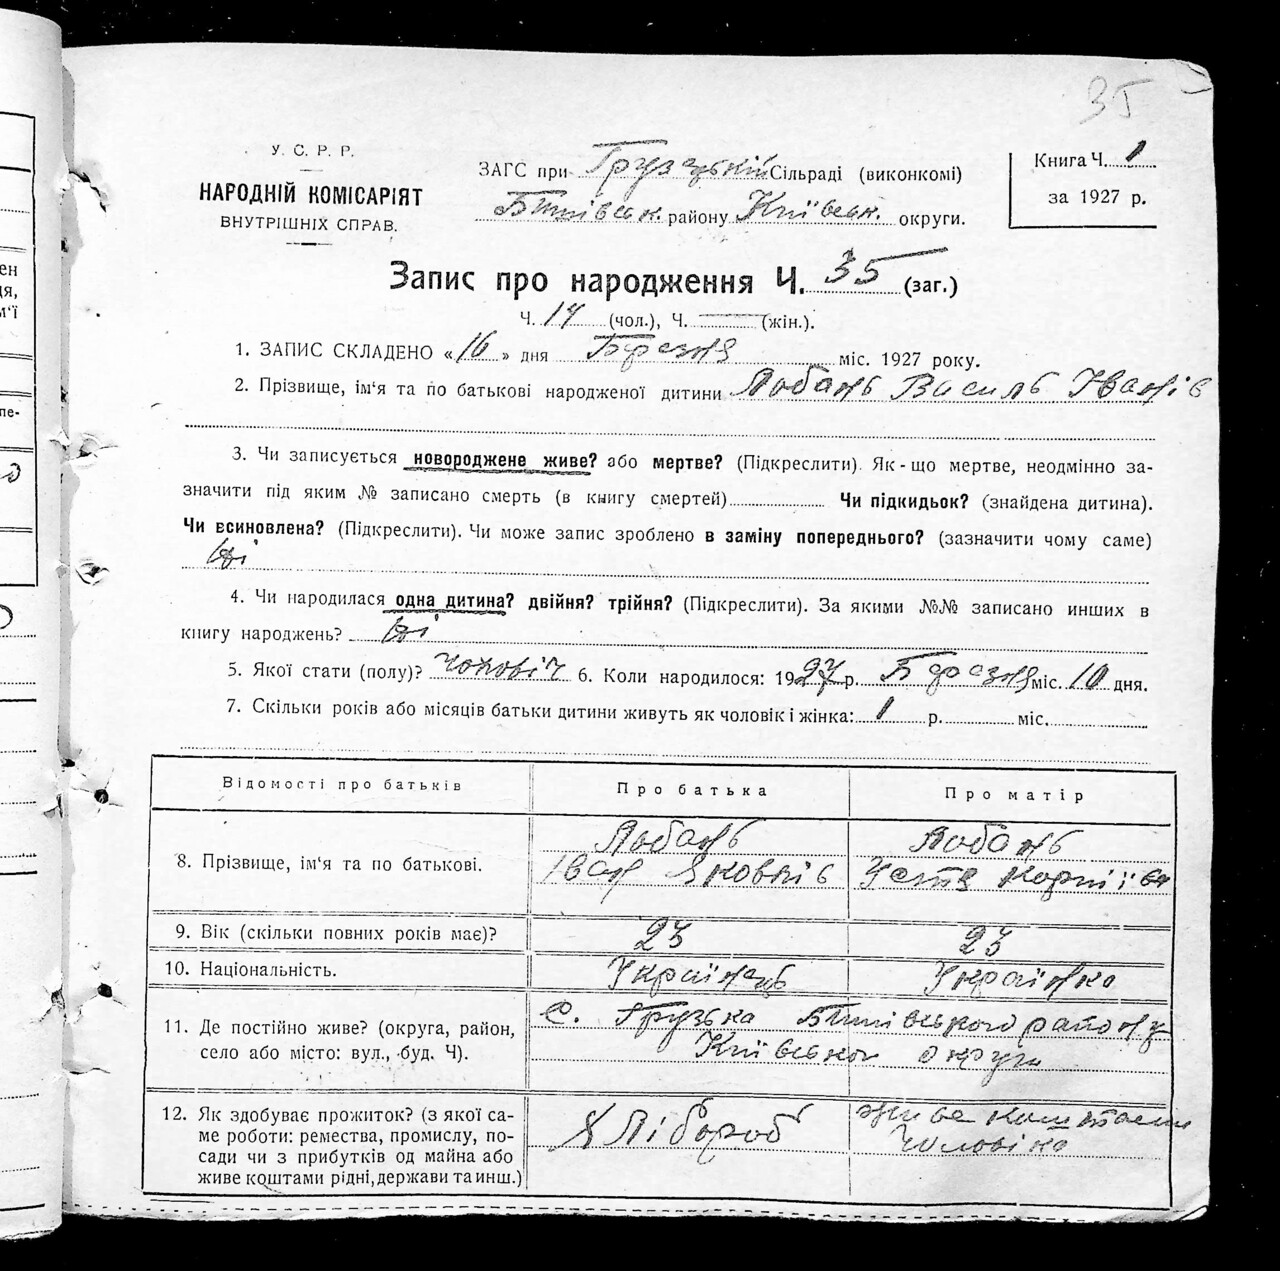 35
У. С. Р. Р.
НАРОДНІЙ КОМІСАРІЯТ
ВНУТРІШНІХ СПРАВ.
ЗАГС при Грузській Сільраді (виконкомі)
Бишівськ. району Київськ. округи.
Книга Ч. 1
за 1927 р.
Запис про народження Ч. 35 (заг.)
Ч. 14 (чол.), Ч. — (жін.).
1. ЗАПИС СКЛАДЕНО «16» дня Березня міс. 1927 року.
2. Прізвище, ім‘я та по батькові народженої дитини Лобань Василь Іванів
3. Чи записується новороджене живе? або мертве? (Підкреслити). Як-що мертве, неодмінно за-
значити під яким № записано смерть (в книгу смертей) Чи підкидьок? (знайдена дитина).
Чи всиновлена? (Підкреслити). Чи може запис зроблено в заміну попереднього? (зазначити чому саме)
Ні
4. Чи народилася одна дитина? двійня? трійня? (Підкреслити). За якими №№ записано инших в
книгу народжень? Ні
5. Якої стати (полу)? Чоловіч 6. Коли народилося: 1927 р. Березня міс. 10 дня.
7. Скільки років або місяців батьки дитини живуть як чоловік і жінка: 1 р. міс.
Відомості про батьків Про батька Про матір
8. Прізвище, ім‘я та по батькові. Лобань Іван Яковлів Лобань Устя Корніївн
9. Вік (скільки повних років має)? 23 23
10. Національність. Українець Українка
11. Де постійно живе? (округа, район,
село або місто: вул., буд. Ч).
с. Грузька Бишівського району
Київської округи
12. Як здобуває прожиток? (з якої са-
ме роботи: ремества, промислу, по-
сади чи з прибутків од майна або
живе коштами рідні, держави та инш.)
Хлібороб
Живе коштами
Чоловіка